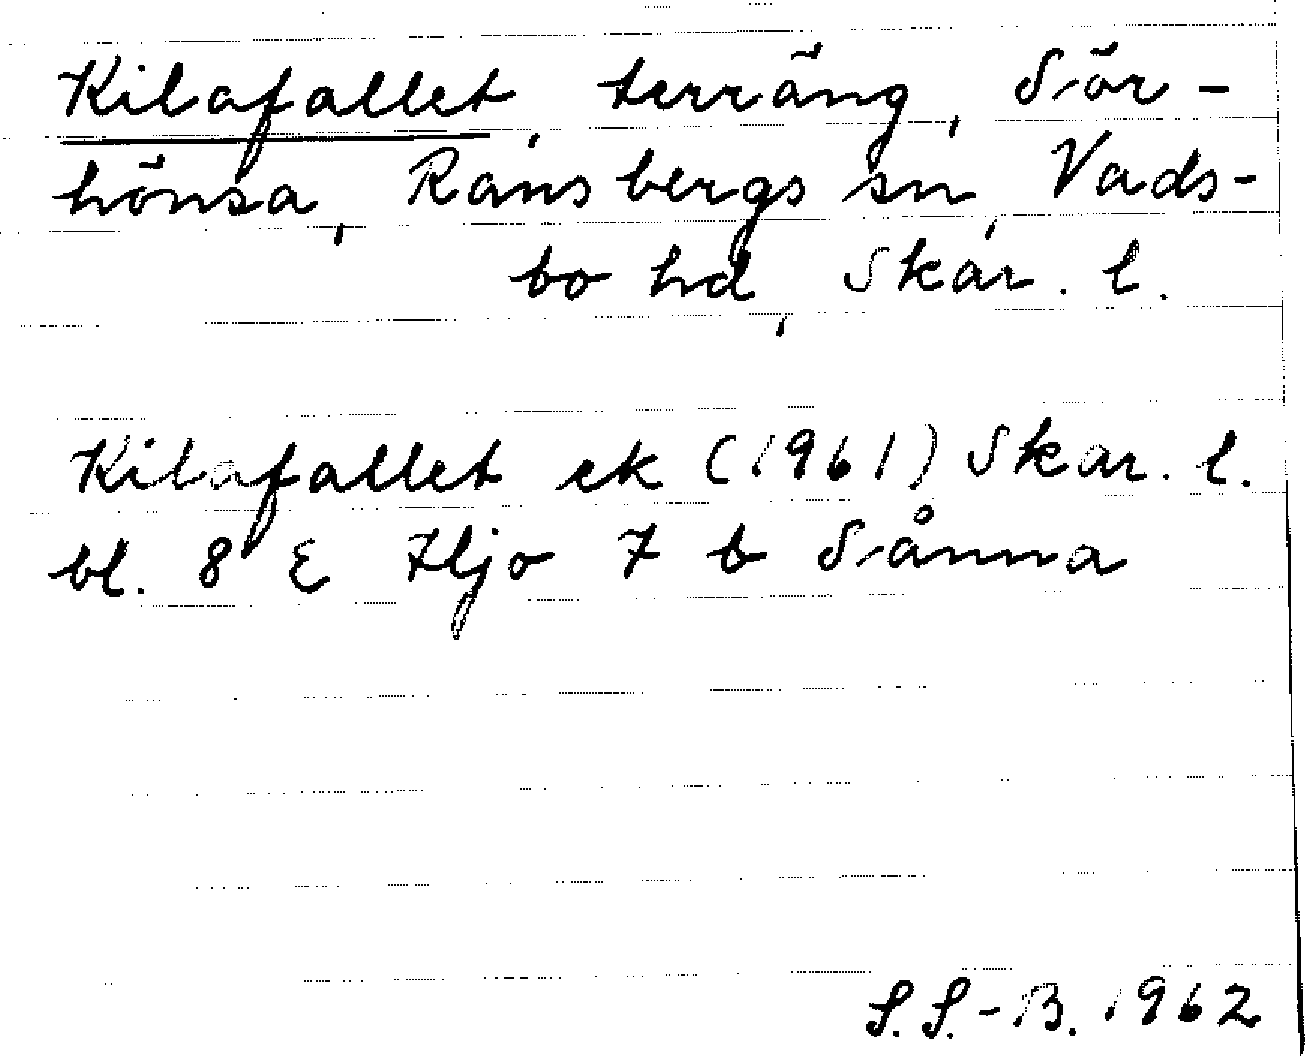 Kilafallet, terräng, Sör-
hönsa, Ransbergs sn, Vads-
bo hd, Skar. l.
Kilafallet ek (1961) Skar. l.
bl. 8 E Hjo 7 b Sånna
S.S.-B. 1962